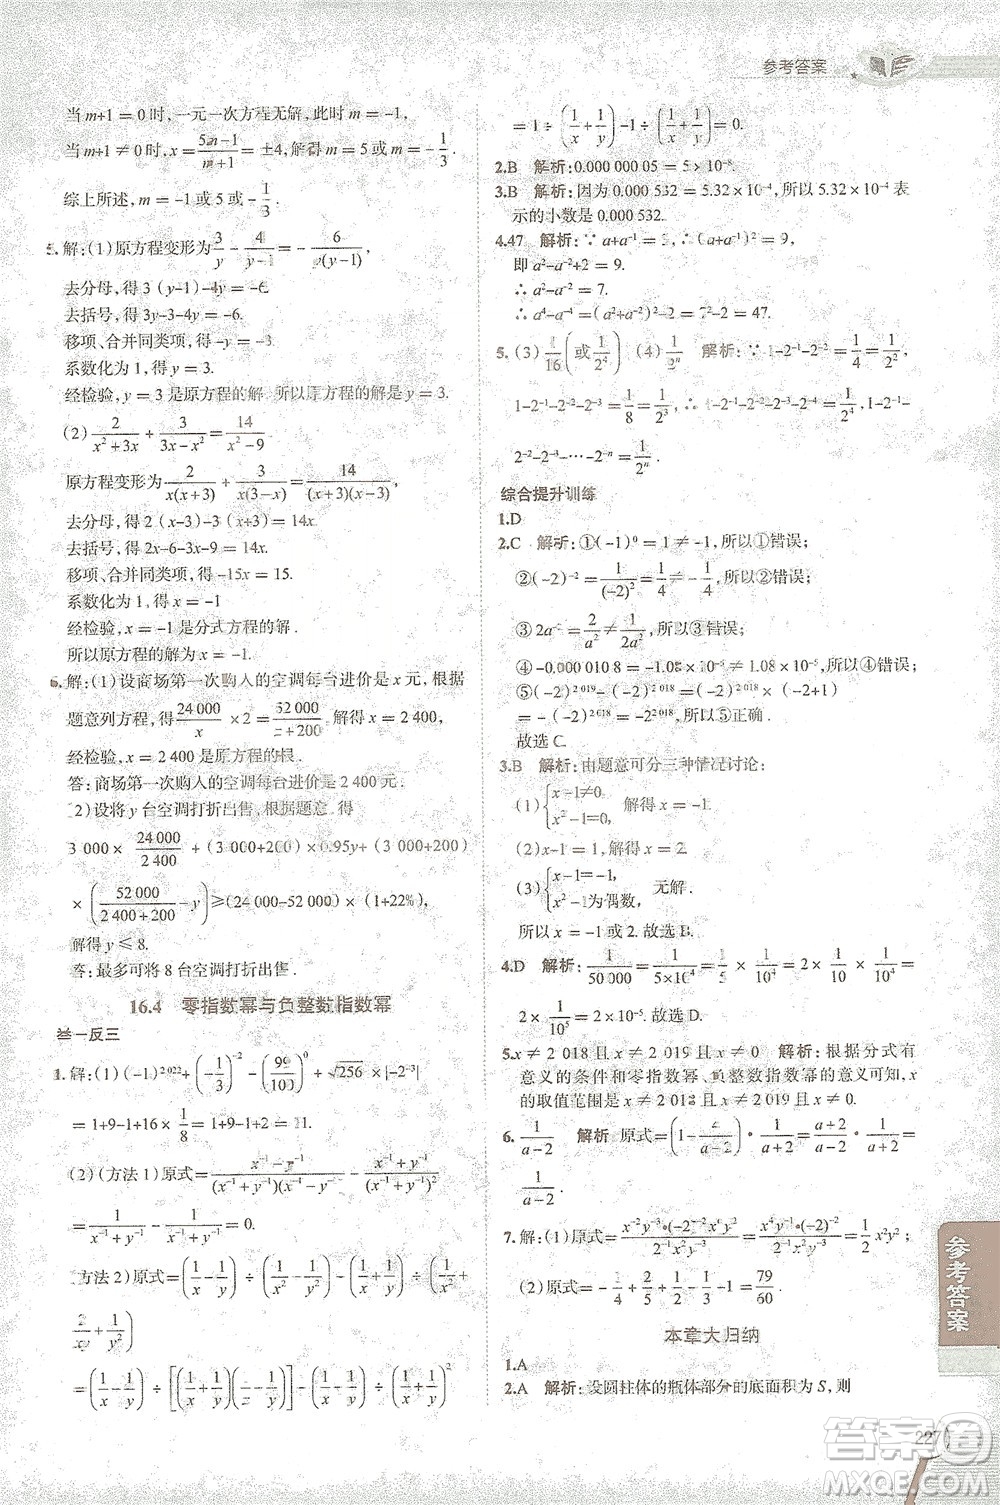 参考答案
当 m+1 = 0时,一元一次方程无解,此时 m = -1,
当 m+1 ≠ 0时,x = (5m-1)/(m+1) = ±4,解得 m = 5或 m = -1/3.
综上所述,m = -1或5或 -1/3.
5.解:(1)原方程变形为 3/y - 4/(y-1) = -6/(y(y-1)),
去分母,得 3(y-1)-4y = -6.
去括号,得 3y-3-4y = -6.
移项、合并同类项,得 -y = -3.
系数化为 1,得 y = 3.
经检验,y = 3 是原方程的解,所以原方程的解是 y = 3.
(2) 2/(x²+3x) + 3/(3x-x²) = 14/(x²-9)
原方程变形为 2/(x(x+3)) - 3/(x(x-3)) = 14/((x+3)(x-3)),
去分母,得 2(x-3)-3(x+3) = 14x.
去括号,得 2x-6-3x-9 = 14x.
移项、合并同类项,得 -15x = 15.
系数化为 1,得 x = -1
经检验,x = -1 是分式方程的解.
所以原方程的解为 x = -1.
6.解:(1)设商场第一次购入的空调每台进价是 x 元,根据
题意列方程 24 000/x × 2 = 52 000/(x+200),解得 x = 2 400,
经检验,x = 2 400 是原方程的根.
答:商场第一次购入的空调每台进价是 2 400 元.
(2)设将 y 台空调打折出售,根据题意,得
3 000 × 24 000/2 400 + (3 000+200)×0.95y+(3 000+200)
× (52 000/(2 400+200) - y) ≥ (24 000+52 000)×(1+22%)
解得 y ≤ 8.
答:最多可将 8 台空调打折出售.
16.4 零指数幂与负整数指数幂
举一反三
1.解:(1)(-1)²⁰²²+(-1/3)⁻²-(99/100)⁰+√256 ×|-2⁻³|
= 1+9-1+16 × 1/8 = 1+9-1+2 = 11.
(2)(方法 1)原式 = (x⁻¹-y⁻¹)/((x⁻¹+y⁻¹)(x⁻¹-y⁻¹)) - (x⁻¹+y⁻¹)/(x⁻¹+y⁻¹)²
= 1/(x⁻¹+y⁻¹) - 1/(x⁻¹+y⁻¹) = 0.
(方法 2)原式 = (1/x - 1/y) ÷ (1/x² - 1/y²) - (1/x + 1/y) ÷ (1/x² +
2/xy + 1/y²)
= (1/x - 1/y) ÷ [(1/x + 1/y)(1/x - 1/y)] - (1/x + 1/y) ÷ (1/x + 1/y)²
= 1 ÷ (1/x + 1/y) - 1 ÷ (1/x + 1/y) = 0.
2.B 解析:0.000 000 05 = 5 × 10⁻⁸.
3.B 解析:因为 0.000 532 = 5.32 × 10⁻⁴,所以 5.32 × 10⁻⁴ 表
示的小数是 0.000 532.
4.47 解析:∵ a+a⁻¹ = 3,∴ (a+a⁻¹)² = 9,
即 a²+a⁻²+2 = 9.
∴ a²+a⁻² = 7.
∴ a⁴+a⁻⁴ = (a²+a⁻²)²-2 = 7²-2 = 47.
5.(3) 1/16 (或 1/2⁴) (4) 1/2ⁿ 解析:∵ 1-2⁻¹-2⁻² = 1/4 = 1/2²,
1-2⁻¹-2⁻²-2⁻³ = 1/8 = 1/2³,∴ 1-2⁻¹-2⁻²-2⁻³-2⁻⁴ = 1/2⁴,1-2⁻¹-
2⁻²-2⁻³-⋯-2⁻ⁿ = 1/2ⁿ.
综合提升训练
1.D
2.C 解析:①(-1)⁰ = 1 ≠ -1,所以①错误;
②(-2)⁻² = 1/(-2)² = 1/4 ≠ -1/4,所以②错误;
③ 2a⁻² = 2/a² ≠ 1/2a²,所以③错误;
④ -0.000 010 8 = -1.08 × 10⁻⁵ ≠ 1.08 × 10⁻⁵,所以④错误;
⑤(-2)²⁰¹⁹+(-2)²⁰¹⁸ = (-2)²⁰¹⁸ × (-2+1)
= -(-2)²⁰¹⁸ = -2²⁰¹⁸,所以⑤正确.
故选 C.
3.B 解析:由题意可分三种情况讨论:
(1) { x-1≠0, x²-1=0, 解得 x = -1.
(2)x-1 = 1,解得 x = 2.
(3) { x-1=-1, x²-1为偶数, 无解.
所以 x = -1 或 2.故选 B.
4.D 解析: 1/50 000 = 1/(5×10⁴) = 1/5 × 1/10⁴ = 2 × 1/10 × 1/10⁴ =
2 × 1/10⁵ = 2 × 10⁻⁵.故选 D.
5.x ≠ 2 018 且 x ≠ 2 019 且 x ≠ 0 解析:根据分式有
意义的条件和零指数幂、负整数指数幂的意义可知,x
的取值范围是 x ≠ 2 018 且 x ≠ 2 019 且 x ≠ 0.
6. 1/(a-2) 解析:原式 = (1 - 2/(a+2)) · (a+2)/(a²-2a) = a/(a+2) · (a+2)/(a(a-2)) =
1/(a-2).
7.解:(1)原式 = x⁻²y⁻³·(-2)⁻²x⁴y⁻²/(2⁻¹x⁻²y⁻³) = x²y⁻⁵·(-2)⁻²/(2⁻¹x⁻²y⁻³) = 1/2 x⁴y⁻²;
(2)原式 = -1/4+1/15+1/2+1 = 79/60.
本章大归纳
1.A
2.A 解析:设圆柱体的瓶体部分的底面积为 S,则
参考答案
227
答案圈
MXQE.COM